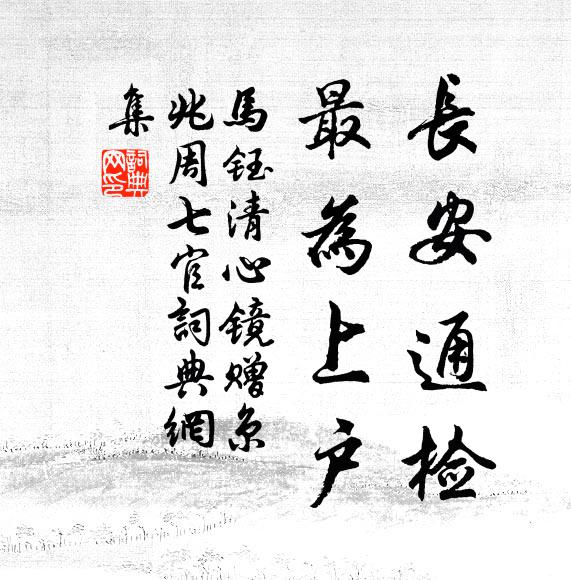 長安通檢
最為上户
馬鈺清心鏡贈京
兆周七官詞典網
集
詞典
网印